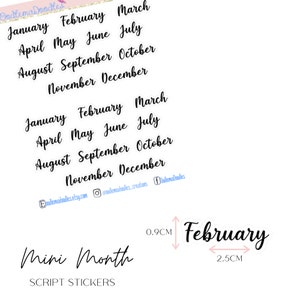 January February March
April May June July
August September October
November December
January February March
April May June July
August September October
November December
0.9CM
February
2.5CM
Mini Month
SCRIPT STICKERS